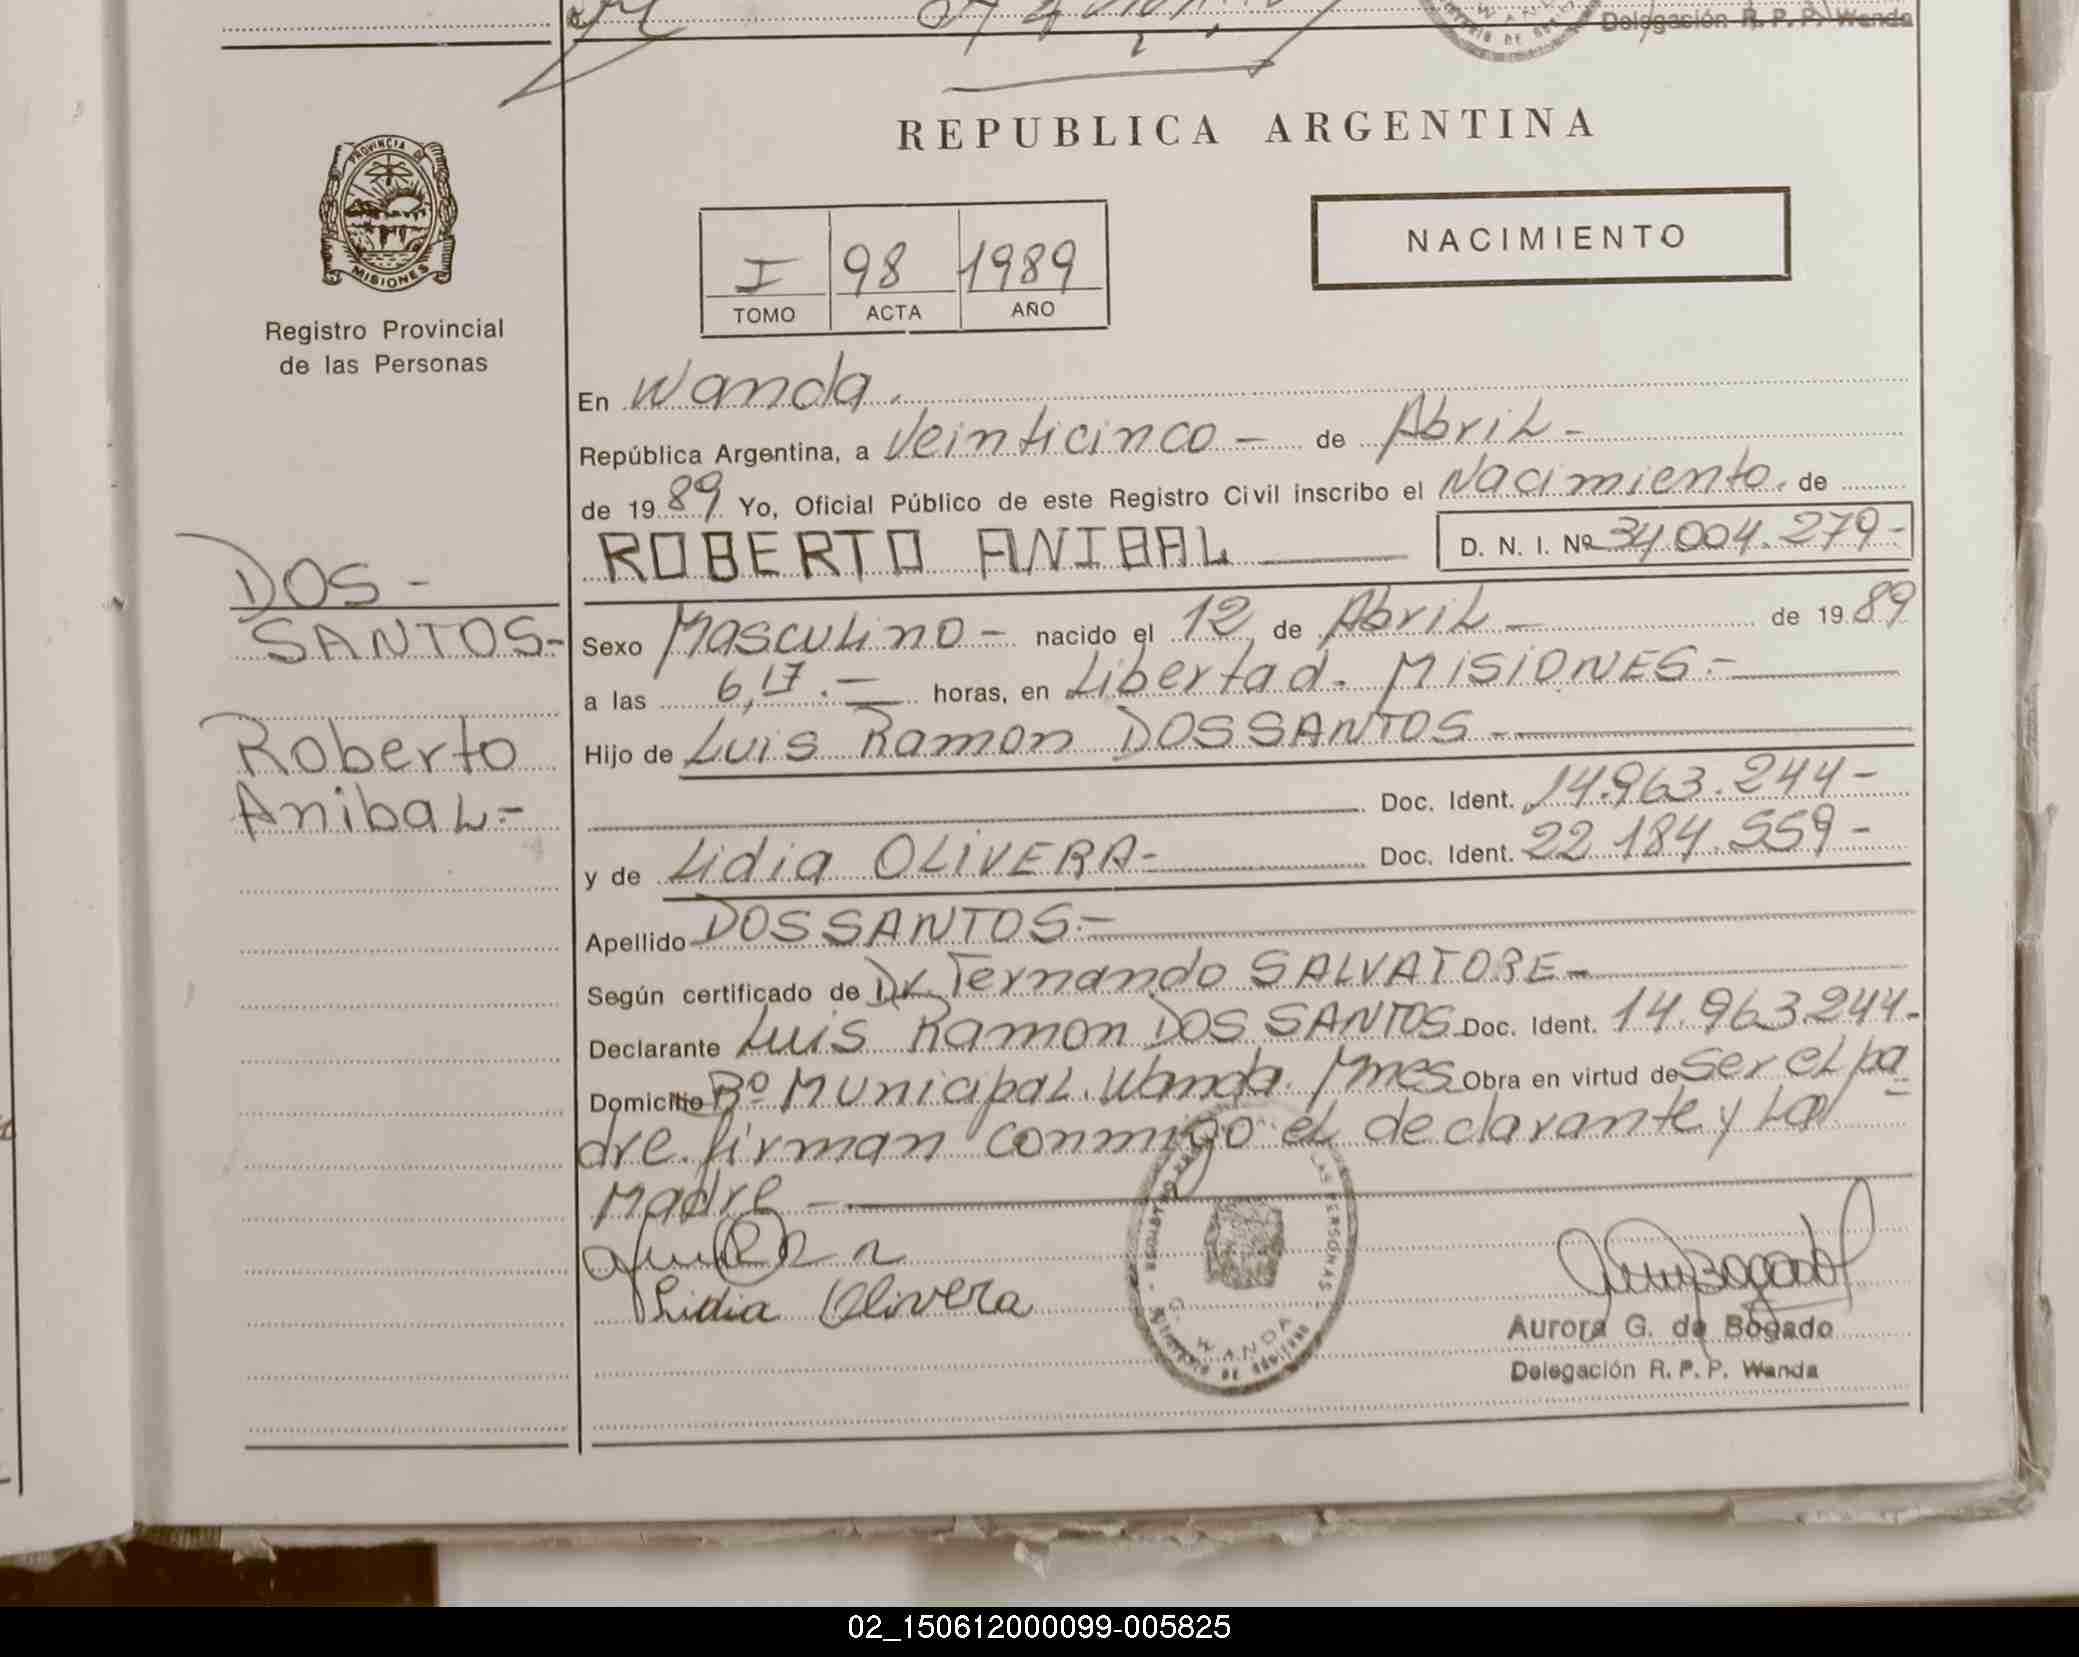 Delegación R. P. P. Wanda
PROVINCIA DE
MISIONES
Registro Provincial
de las Personas
REPUBLICA ARGENTINA
NACIMIENTO
I 98 1989
TOMO ACTA AÑO
En Wanda.
República Argentina, a Veinticinco - de Abril -
de 1989 Yo, Oficial Público de este Registro Civil inscribo el Nacimiento. de
ROBERTO ANIBAL D. N. I. Nº 34.004.279-
DOS -
SANTOS-
Roberto
Anibal-
Sexo Masculino - nacido el 12 de Abril - de 1989
a las 6,17.- horas, en Libertad. MISIONES-
Hijo de Luis Ramon DOS SANTOS -
Doc. Ident. 14.963.244-
y de Lidia OLIVERA- Doc. Ident. 22.184.559-
Apellido DOS SANTOS.-
Según certificado de Dr. Fernando SALVATORE-
Declarante Luis Ramon DOS SANTOS Doc. Ident. 14.963.244-
Domicilio Bº Municipal. Wanda. Mnes Obra en virtud de ser el pa-
dre. firman conmigo el declarante y la
Madre -
Lidia Olivera
WANDA
Aurora G. de Bogado
Delegación R. P. P. Wanda
02_150612000099-005825